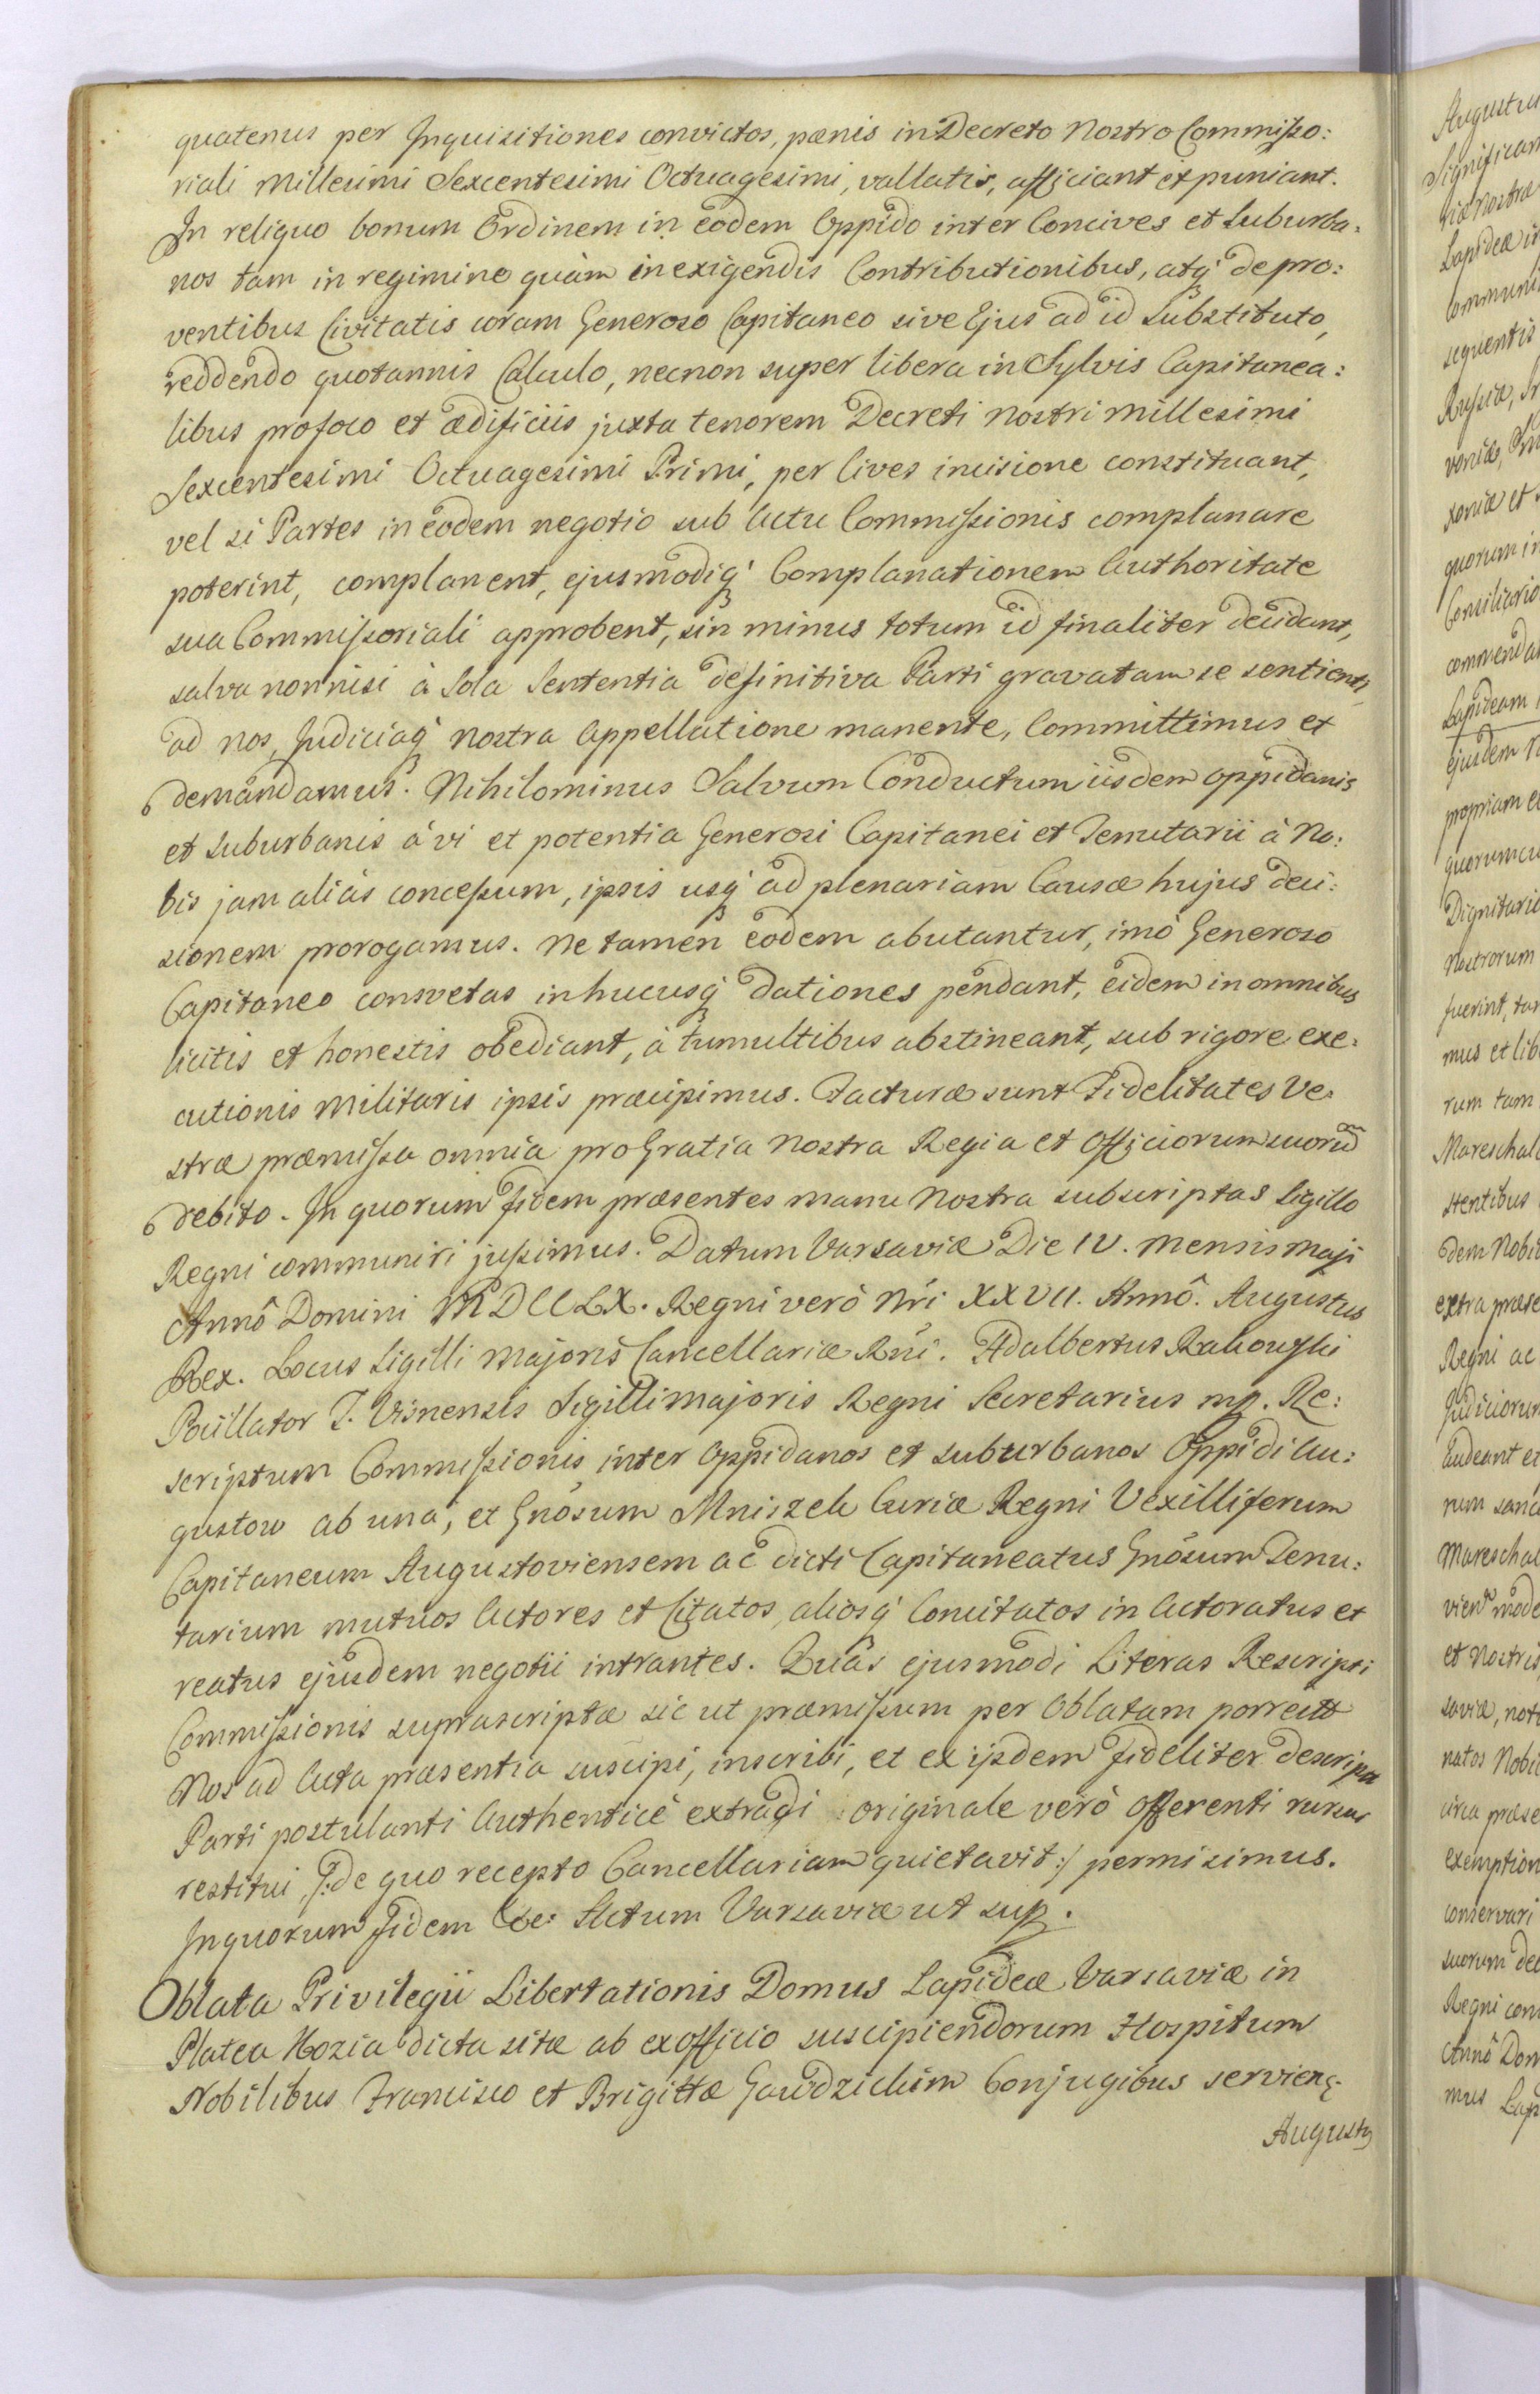 quatenus per Inquisitiones convictos, pænis in Decreto Nostro Commisso:
riali Millesimi Sexcentesimi Octuagesimi, vallatis, afficiant et puniant.
In reliquo bonum Ordinem in eodem Oppido inter Concives et Suburba:
nos tam in regimine quàm in exigendis Contributionibus, atq́ de pro:
ventibus Civitatis coram Generoso Capitaneo sive Ejus ad id Substituto,
reddendo quotannis Calculo, necnon super libera in Sylvis Capitanea:
libus pro foco et ædificiis juxta tenorem Decreti Nostri Millesimi
Sexcentesimi Octuagesimi Primi, per Cives incisione constituant,
vel si Partes in eodem negotio sub Actu Commissionis complanare
poterint, complanent, ejusmodiq́ Complanationem Authoritate
sua Commissoriali approbent, sin minus totum id finaliter decidant,
salva nonnisi à Sola Sententia definitiva Parti gravatam se sentienti
ad nos, Judiciaq́ Nostra Appellatione manente, Committimus et
demandamus. Nihilominus Salvum Conductum iisdem oppidanis
et suburbanis à vi et potentia Generosi Capitanei et Tenutarii à No:
bis jam aliàs concessum, ipsis usq́ ad plenariam Causæ hujus deci:
sionem prorogamus. Ne tamen eodem abutantur, imò Generoso
Capitaneo consvetas inhucusq́ dationes pendant, eidem in omnibus
licitis et honestis obediant, à tumultibus abstineant, sub rigore exe:
cutionis Militaris ipsis præcipimus. Facturæ sunt Fidelitates Ve:
stræ præmissa omnia pro Gratia Nostra Regia et Officiorum suorum
debito. In quorum fidem præsentes manu Nostra subscriptas Sigillo
Regni communiri jussimus. Datum Varsaviæ Die IV. Mensis Maji
Annô Domini MDCCLX. Regni verò Nri XXVII. Annô. Augustus
Rex. Locus Sigilli Majoris Cancellariæ Rni. Adalbertus Rakowski
Bullator T. Visnensis Sigilli Majoris Regni Secretarius mp. Re:
scriptum Commissionis inter Oppidanos et suburbanos Oppidi Au:
gustow ab una, et Gnosum Mniszch Curiæ Regni Vexilliferum
Capitaneum Augustoviensem ac dicti Capitaneatus Gnosum Tenu:
tarium mutuos Actores et Citatos, aliosq́ Concitatos in Actoratus et
reatus ejusdem negotii intrantes. Quas ejusmodi Literas Rescripti
Commissionis suprascriptæ sic ut præmissum per Oblatam porrectas
Nos ad Acta præsentia suscipi, inscribi, et ex ijsdem fideliter descripta
Parti postulanti Authenticè extradi originale verò Offerenti rursus
restitui /: de quo recepto Cancellariam quietavit :/ permisimus.
In quorum fidem &c: Actum Varsaviæ ut sup.
Oblata Privilegii Libertationis Domus Lapideæ Varsaviæ in
Platea Kozia dicta sitæ ab ex officio suscipiendorum Hospitum
Nobilibus Francisco et Brigittæ Gawdzickim Conjugibus servien:
Augustus